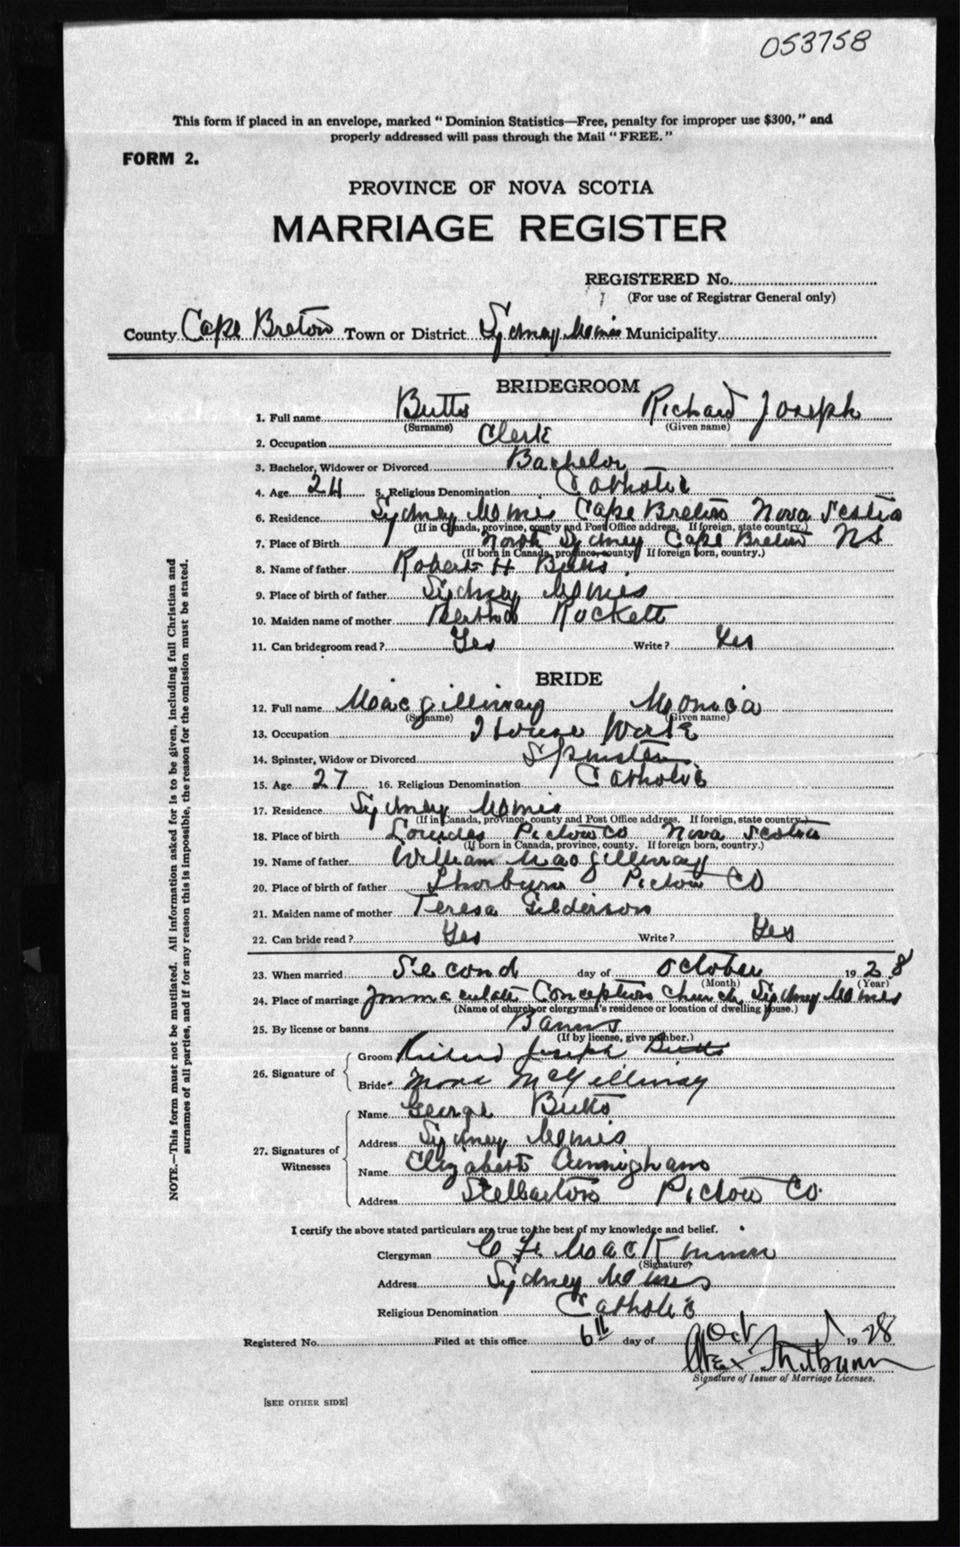 053758
This form if placed in an envelope, marked "Dominion Statistics—Free, penalty for improper use $300," and
properly addressed will pass through the Mail "FREE."
FORM 2.
PROVINCE OF NOVA SCOTIA
MARRIAGE REGISTER
REGISTERED No.
(For use of Registrar General only)
County Cape Breton Town or District Sydney Mines Municipality
BRIDEGROOM
1. Full name Butts Richard Joseph
(Surname) (Given name)
2. Occupation Clerk
3. Bachelor, Widower or Divorced Bachelor
4. Age 24 5. Religious Denomination Catholic
6. Residence Sydney Mines Cape Breton Nova Scotia
(If in Canada, province, county and Post Office address. If foreign, state country.)
7. Place of Birth North Sydney Cape Breton NS
(If born in Canada, province, county If foreign born, country.)
8. Name of father Robert H Butts
9. Place of birth of father Sydney Mines
10. Maiden name of mother Bertha Rockett
11. Can bridegroom read? Yes Write? Yes
BRIDE
12. Full name MacGillivray Monica
(Surname) (Given name)
13. Occupation House Work
14. Spinster, Widow or Divorced Spinster
15. Age 27 16. Religious Denomination Catholic
17. Residence Sydney Mines
(If in Canada, province, county and Post Office address. If foreign, state country.)
18. Place of birth Lourdes Pictou Co Nova Scotia
(If born in Canada, province, county. If foreign born, country.)
19. Name of father William MacGillivray
20. Place of birth of father Thorburn Pictou CO
21. Maiden name of mother Teresa Gilderson
22. Can bride read? Yes Write? Yes
23. When married Second day of October 1928
(Month) (Year)
24. Place of marriage Immaculate Conception Church Sydney Mines
(Name of church or clergyman's residence or location of dwelling house.)
25. By license or banns Banns
(If by license, give number.)
26. Signature of
Groom Richard Joseph Butts
Bride Mona McGillivray
27. Signatures of Witnesses
Name George Butts
Address Sydney Mines
Name Elizabeth Cunningham
Address Stellarton Pictou Co.
I certify the above stated particulars are true to the best of my knowledge and belief.
Clergyman C F MacKinnon
(Signature)
Address Sydney Mines
Religious Denomination Catholic
Registered No. Filed at this office 6th day of Oct 1928
Alex Thilbunn
Signature of Issuer of Marriage Licenses.
[SEE OTHER SIDE]
NOTE.—This form must not be mutilated. All information asked for is to be given, including full Christian and
surnames of all parties, and if for any reason this is impossible, the reason for the omission must be stated.